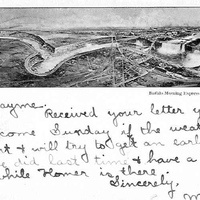 Buffalo Morning Express
ayme.
Received your letter y
come Sunday if the weat
t & will try to get an earl
e did last time & have a
while Homer is there
Sincerely,